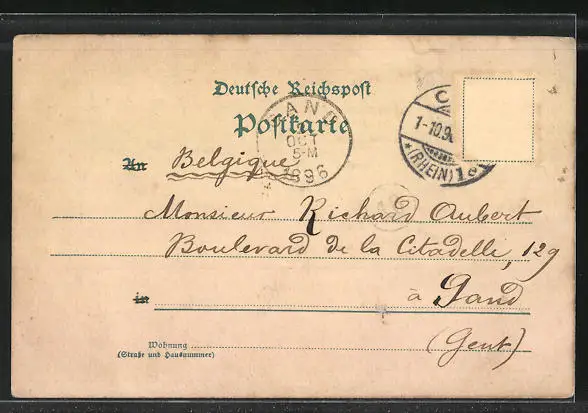 Deutsche Reichspost
Postkarte
GAND
OCT
5-M
1896
C
1-10.96
* (RHEIN) 1
An Belgique
Monsieur Richard Aubert
Boulevard de la Citadelle, 129
in à Gand
(Gent)
Wohnung
(Straße und Hausnummer)